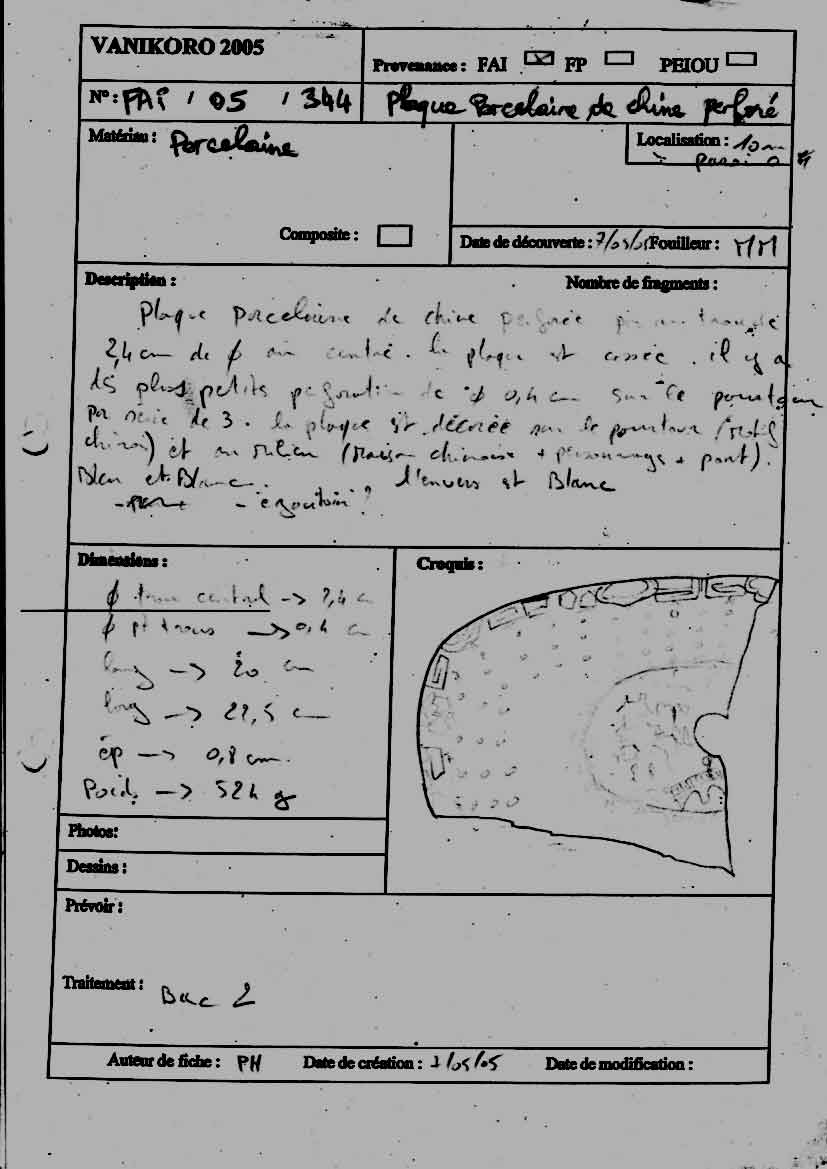 VANIKORO 2005
Provenance : FAI FP PEIOU
N° : FAI / 05 / 344 Plaque Porcelaine de chine perforé
Matériau : Porcelaine
Localisation : 10m
Composite :
Date de découverte : 7/05/05 Fouilleur : MM
Description : Nombre de fragments :
Plaque porcelaine de chine perforée par un trou de
2,4 cm de ϕ au centre. la plaque est cassée. il y a
15 plus petits perforation de ϕ 0,4 cm sur le pourtour
par serie de 3. la plaque est décorée sur le pourtour (motif
chinois) et au milieu (Maison chinoise + personnage + pont).
Bleu et Blanc. l'envers est Blanc
- egoutoir ?
Dimensions : Croquis :
ϕ trou central -> 2,4 c
ϕ pt trous -> 0,4 c
-> 20 cm
long -> 22,5 cm
ép -> 0,8 cm.
Poids -> 524 g
Photos:
Dessins :
Prévoir :
Traitement : Bac 2
Auteur de fiche : PH Date de création : 7/05/05 Date de modification :